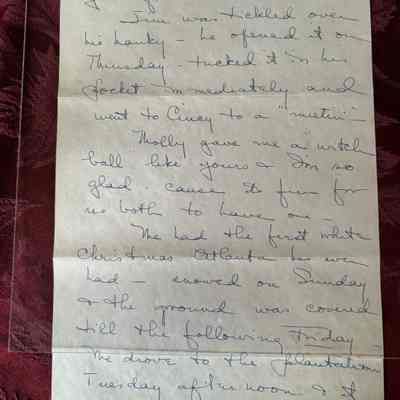 Jim was tickled over
his hanky - he opened it on
Thursday - tucked it in his
pocket immediately and
went to Cincy to a "meetin" -
Molly gave me a "witch
ball" like yours & I'm so
glad. cause its fun for
us both to have one -
We had the first white
Christmas Atlanta has ever
had - snowed on Sunday
& the ground was covered
till the following Friday -
We drove to the plantation
Tuesday afternoon & it